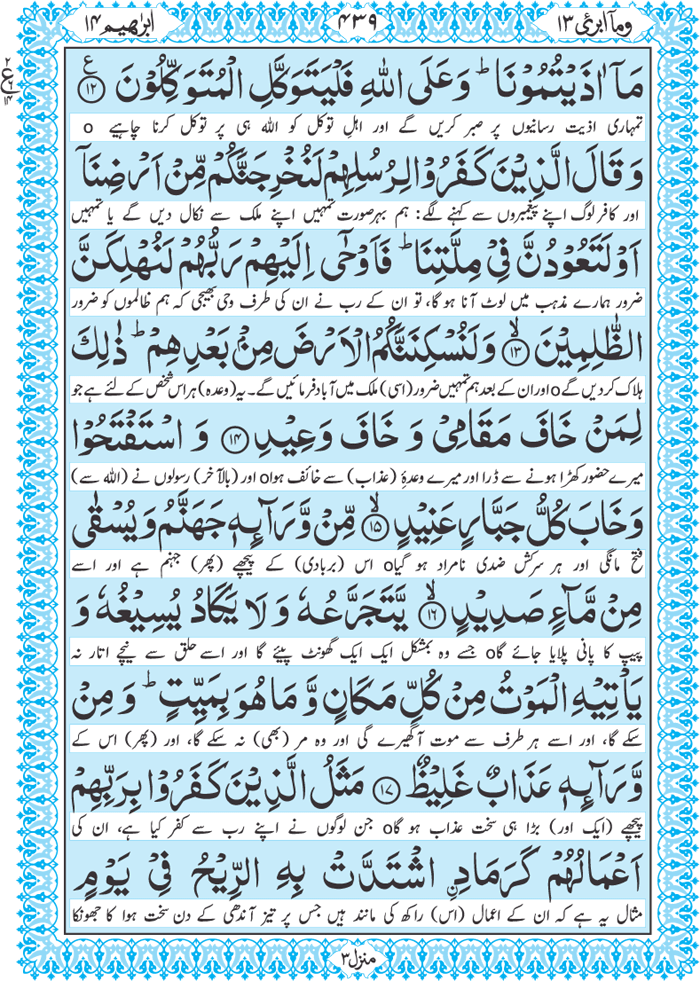 وما ابرئ ۱۳
۴۳۹
ابرٰهيم ۱۴
مَاۤ اٰذَيْتُمُوْنَا ؕ وَعَلَى اللّٰهِ فَلْيَتَوَكَّلِ الْمُتَوَكِّلُوْنَ ۱۲
تمہاری اذیت رسانیوں پر صبر کریں گے اور اہلِ توکل کو اللہ ہی پر توکل کرنا چاہیے o
وَ قَالَ الَّذِيْنَ كَفَرُوْا لِرُسُلِهِمْ لَنُخْرِجَنَّكُمْ مِّنْ اَرْضِنَاۤ
اور کافر لوگ اپنے پیغمبروں سے کہنے لگے: ہم بہرصورت تمہیں اپنے ملک سے نکال دیں گے یا تمہیں
اَوْ لَتَعُوْدُنَّ فِيْ مِلَّتِنَا ؕ فَاَوْحٰۤى اِلَيْهِمْ رَبُّهُمْ لَنُهْلِكَنَّ
ضرور ہمارے مذہب میں لوٹ آنا ہو گا، تو ان کے رب نے ان کی طرف وحی بھیجی کہ ہم ظالموں کو ضرور
الظّٰلِمِيْنَ ۙ۱۳ وَلَنُسْكِنَنَّكُمُ الْاَرْضَ مِنْۢ بَعْدِهِمْ ؕ ذٰلِكَ
ہلاک کر دیں گے o اور ان کے بعد ہم تمہیں ضرور (اسی) ملک میں آباد فرمائیں گے۔ یہ (وعدہ) ہر اس شخص کے لئے ہے جو
لِمَنْ خَافَ مَقَامِيْ وَ خَافَ وَعِيْدِ ۱۴ وَ اسْتَفْتَحُوْا
میرے حضور کھڑا ہونے سے ڈرا اور میرے وعدۂ (عذاب) سے خائف ہوا o اور (بالآخر) رسولوں نے (اللہ سے)
وَخَابَ كُلُّ جَبَّارٍ عَنِيْدٍ ۙ۱۵ مِّنْ وَّرَآئِهٖ جَهَنَّمُ وَيُسْقٰى
فتح مانگی اور ہر سرکش ضدی نامراد ہو گیا o اس (بربادی) کے پیچھے (پھر) جہنم ہے اور اسے
مِنْ مَّآءٍ صَدِيْدٍ ۙ۱۶ يَّتَجَرَّعُهٗ وَلَا يَكَادُ يُسِيْغُهٗ وَ
پیپ کا پانی پلایا جائے گا o جسے وہ بمشکل ایک ایک گھونٹ پیئے گا اور اسے حلق سے نیچے اتار نہ
يَاْتِيْهِ الْمَوْتُ مِنْ كُلِّ مَكَانٍ وَّ مَا هُوَ بِمَيِّتٍ ؕ وَ مِنْ
سکے گا، اور اسے ہر طرف سے موت آ گھیرے گی اور وہ مر (بھی) نہ سکے گا، اور (پھر) اس کے
وَّرَآئِهٖ عَذَابٌ غَلِيْظٌ ۱۷ مَثَلُ الَّذِيْنَ كَفَرُوْا بِرَبِّهِمْ
پیچھے (ایک اور) بڑا ہی سخت عذاب ہو گا o جن لوگوں نے اپنے رب سے کفر کیا ہے، ان کی
اَعْمَالُهُمْ كَرَمَادِ ۟اشْتَدَّتْ بِهِ الرِّيْحُ فِيْ يَوْمٍ
مثال یہ ہے کہ ان کے اعمال (اس) راکھ کی مانند ہیں جس پر تیز آندھی کے دن سخت ہوا کا جھونکا
منزل ۳